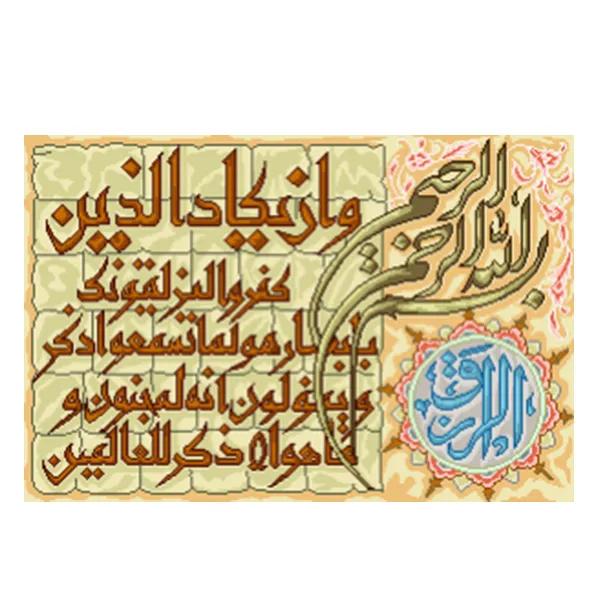 بسم الله الرحمن الرحیم
وان یکاد الذین
کفروا لیزلقونک
بابصارهم لما سمعوا الذکر
و یقولون انه لمجنون و
ما هو الا ذکر للعالمین
الرزاق